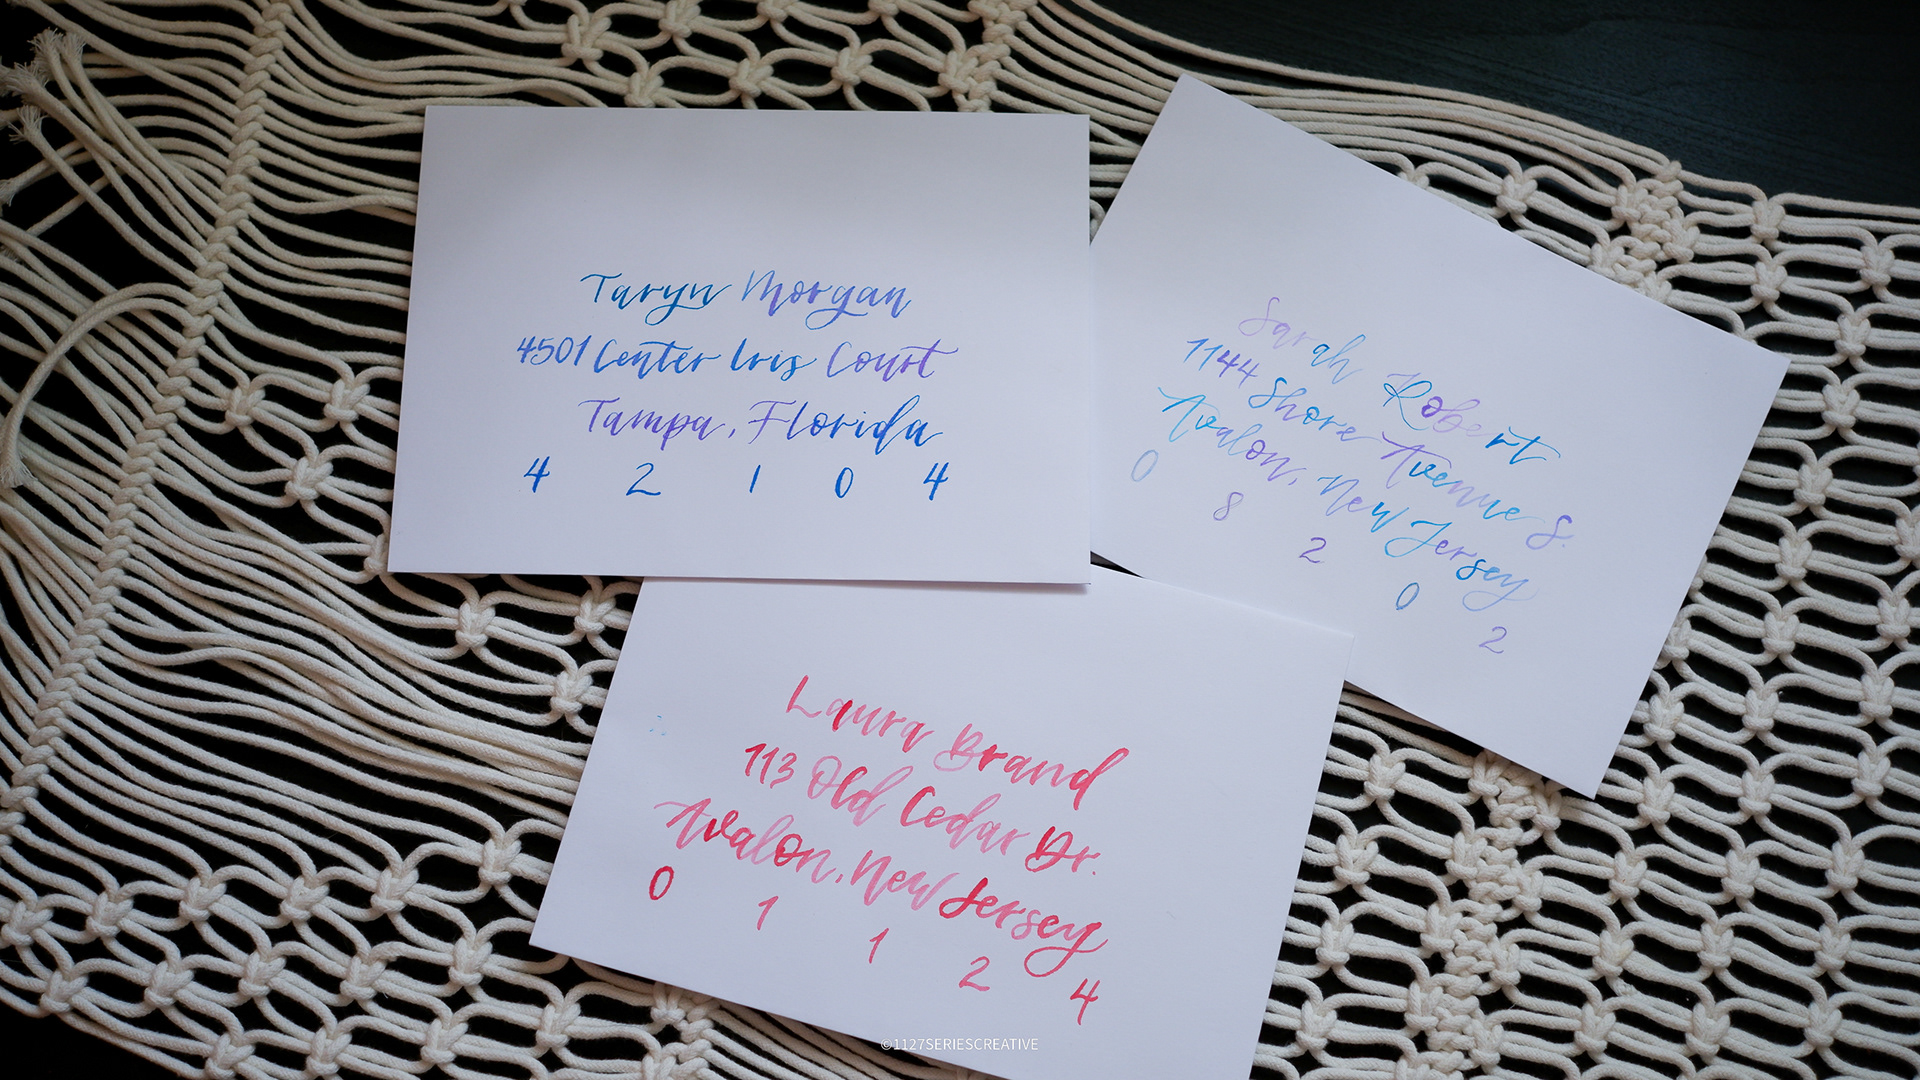 Taryn Morgan
4501 Center Iris Court
Tampa, Florida
4 2 1 0 4
Sarah Robert
1144 Shore Avenue S.
Avalon, New Jersey
0 8 2 0 2
Laura Brand
113 Old Cedar Dr.
Avalon, New Jersey
0 1 1 2 4
©1127SERIESCREATIVE